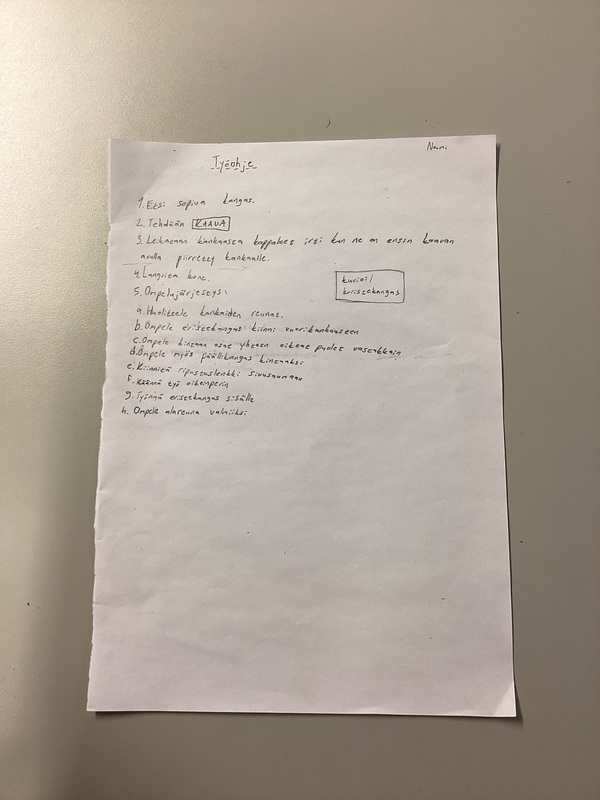 Työohje
1. Etsi sopiva kangas.
2. Tehdään KAAVA
3. Leikataan kankaasta kappaleet irti kun ne on ensin kaavan
avulla piirretty kankaalle.
4. Langoita kone.
kuviot/
eristekangas
5. Ompelujärjestys:
a. Huolittele kankaiden reunat.
b. Ompele eristekangas kiinni vuorikankaaseen
c. Ompele kintaan osat yhteen oikeat puolet vastakkain
d. Ompele myös päällikangas kintaaksi
e. Kiinnitä ripustuslenkki sivusaumaan
f. Käännä työ oikeinperin
g. Työnnä eristekangas sisälle
h. Ompele alareuna valmiiksi